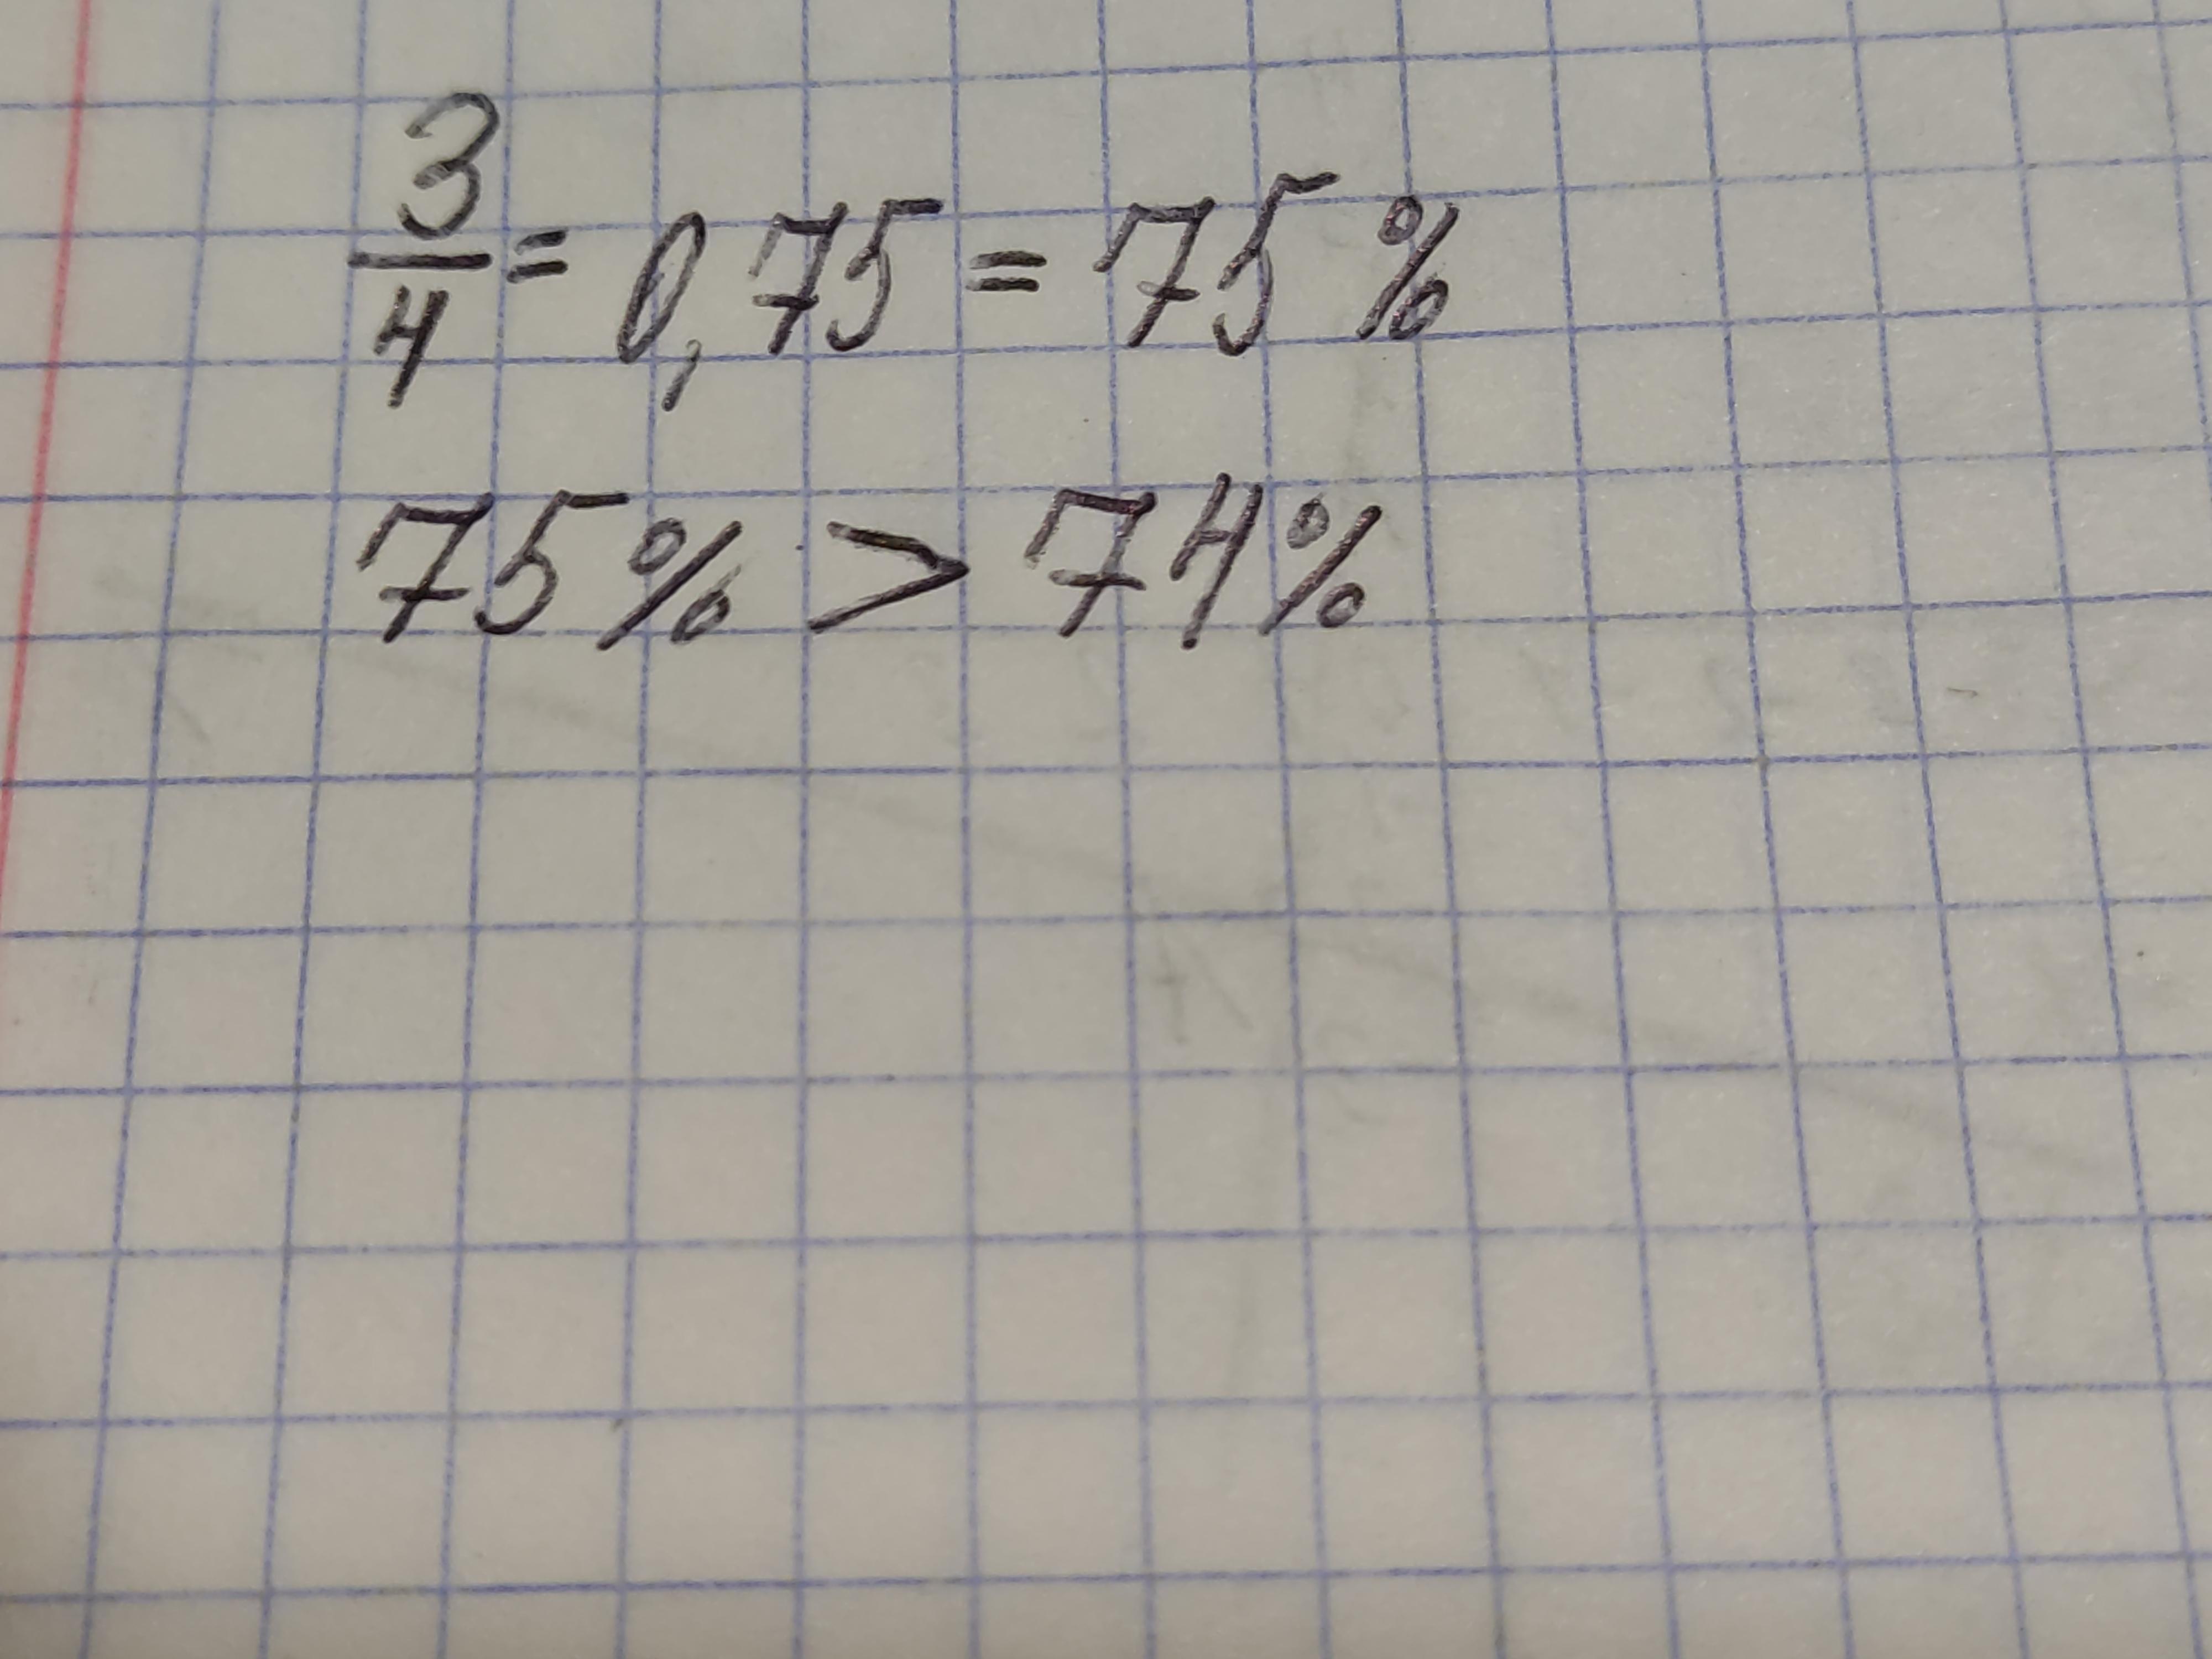 3/4 = 0,75 = 75 %
75% > 74%